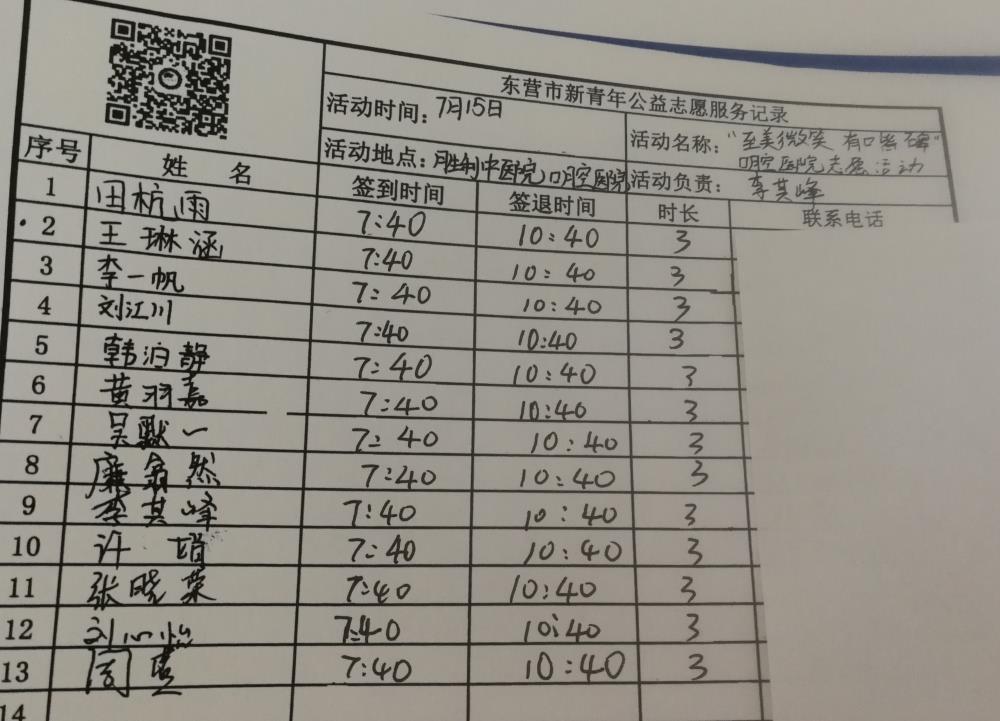 东营市新青年公益志愿服务记录
活动时间: 7月15日 活动名称: "至美微笑 有口皆碑"
口腔医院志愿活动
活动地点: 胜利中医院口腔医院 活动负责: 李其峰
序号 姓 名 签到时间 签退时间 时长 联系电话
1 田杭雨 7:40 10:40 3
2 王琳涵 7:40 10:40 3
3 李一帆 7:40 10:40 3
4 刘江川 7:40 10:40 3
5 韩泊静 7:40 10:40 3
6 黄羽嘉 7:40 10:40 3
7 吴 一 7:40 10:40 3
8 然 7:40 10:40 3
9 李其峰 7:40 10:40 3
10 许 7:40 10:40 3
11 张晓荣 7:40 10:40 3
12 刘心怡 7:40 10:40 3
13 周 7:40 10:40 3
14